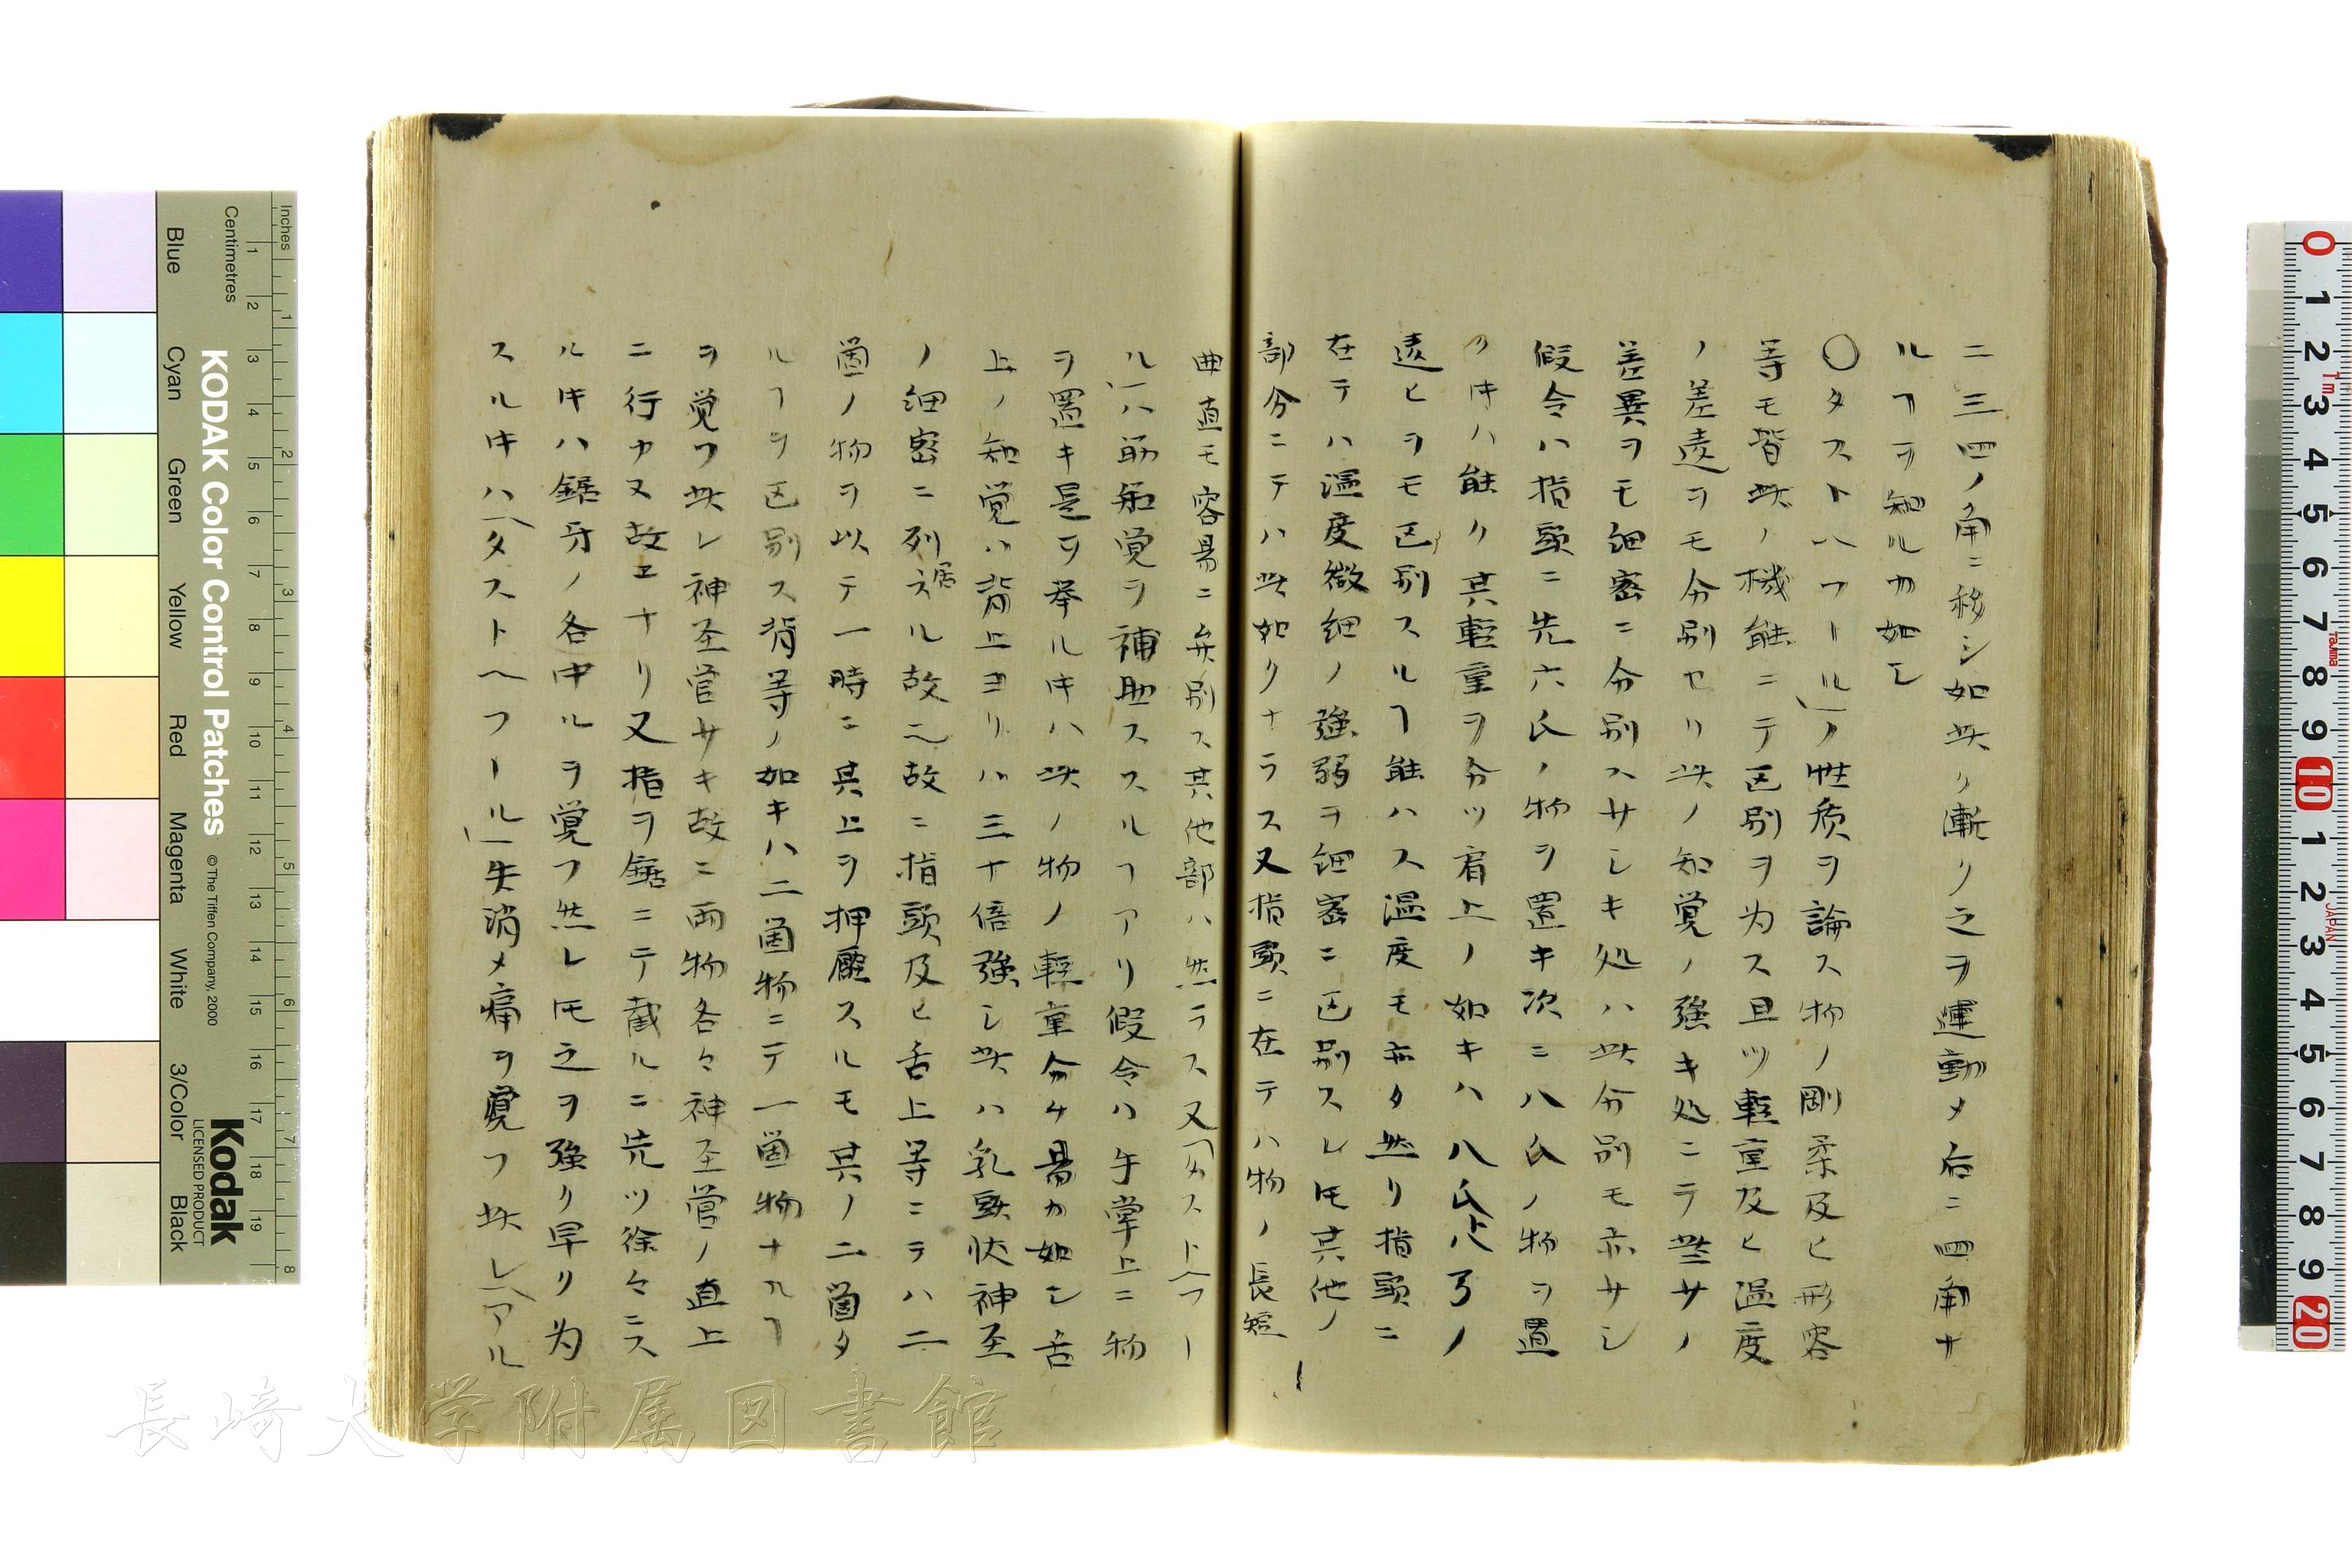 ニ三四ノ角ニ移シ如此ク漸ク之ヲ運動メ后ニ四角ナ
ルヿヲ知ルカ如シ
〇タストヘフール」ノ性質ヲ論ス物ノ剛柔及ヒ形容
等モ皆此ノ機能ニテ区別ヲ为ス且ツ軽重及ヒ温度
ノ差違ヲモ分別セリ此ノ知覚ノ強キ処ニテ些サノ
差異ヲモ細密ニ分別スサレキ処ハ此分別モ亦サシ
假令ハ指頭ニ先六氏ノ物ヲ置キ次ニ八氏ノ物ヲ置
クキハ能ク其軽重ヲ分ツ肩上ノ如キハ八氏ト八ろノ
違ヒヲモ区別スルヿ能ハス温度モ亦タ然リ指頭ニ
在テハ温度微細ノ強弱ヲ細密ニ区別スレ𪜈其他ノ
部分ニテハ此如クナラス又指頭ニ在テハ物ノ長短
曲直モ容易ニ弁別ス其他部ハ然ラス又「タストヘフー
ル」ハ筋知覚ヲ補助ススルヿアリ假令ハ午掌上ニ物
ヲ置キ是ヲ挙ルキハ此ノ物ノ軽重分ケ易カ如シ舌
上ノ知覚ハ背上ヨリハ三十倍強シ此ハ乳頭状神圣
ノ細密ニ列居スル故ニ故ニ指頭及ヒ舌上等ニテハ二
箇ノ物ヲ以テ一時ニ其上ヲ押壓スルモ其ノ二箇タ
ルヿヲ区別ス背等ノ如キハ二箇物ニテ一箇物ナルヿ
ヲ覚フ此レ神圣官サキ故ニ両物各々神圣管ノ直上
ニ行カヌ故エナリ又指ヲ鋸ニテ截ルニ先ツ徐々ニス
ルキハ鋸牙ノ各中ルヲ覚フ然レ𪜈之ヲ强ク早ク为
スルキハ「タストヘフール」失消メ痛ヲ寛フ此レ「アル
Inches
Centimetres
KODAK Color Control Patches
© The Tiffen Company, 2000
Kodak
LICENSED PRODUCT
Blue
Cyan
Green
Yellow
Red
Magenta
White
3/Color
Black
1 2 3 4 5 6 7 8 9 10 11 12 13 14 15 16 17 18 19
1 2 3 4 5 6 7 8
0 1 2 3 4 5 6 7 8 9 10 1 2 3 4 5 6 7 8 9 20
1m
Tajima
JAPAN
長崎大学附属図書館